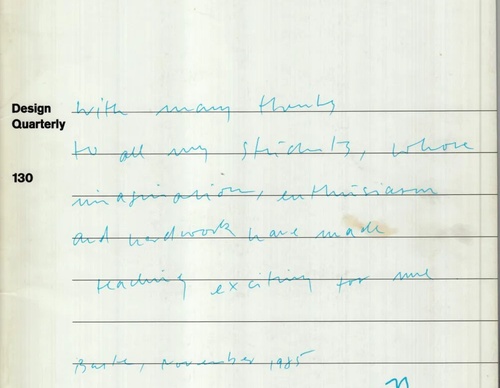 Design
Quarterly
130
With many thanks
to all my students, whose
imagination, enthusiasm
and hardwork have made
teaching exciting for me
Basle, November 1985